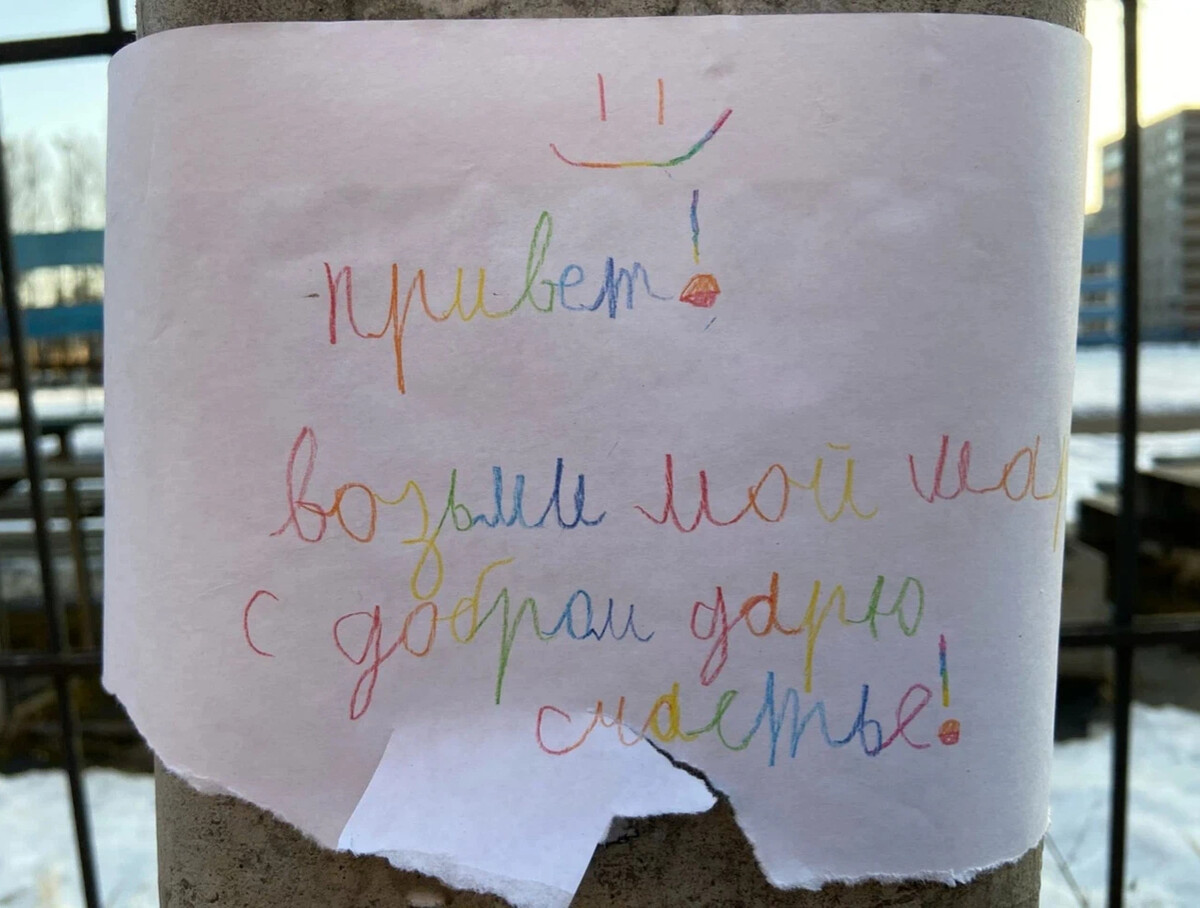 привет!
возьми мой
с добром дарю
счастье!